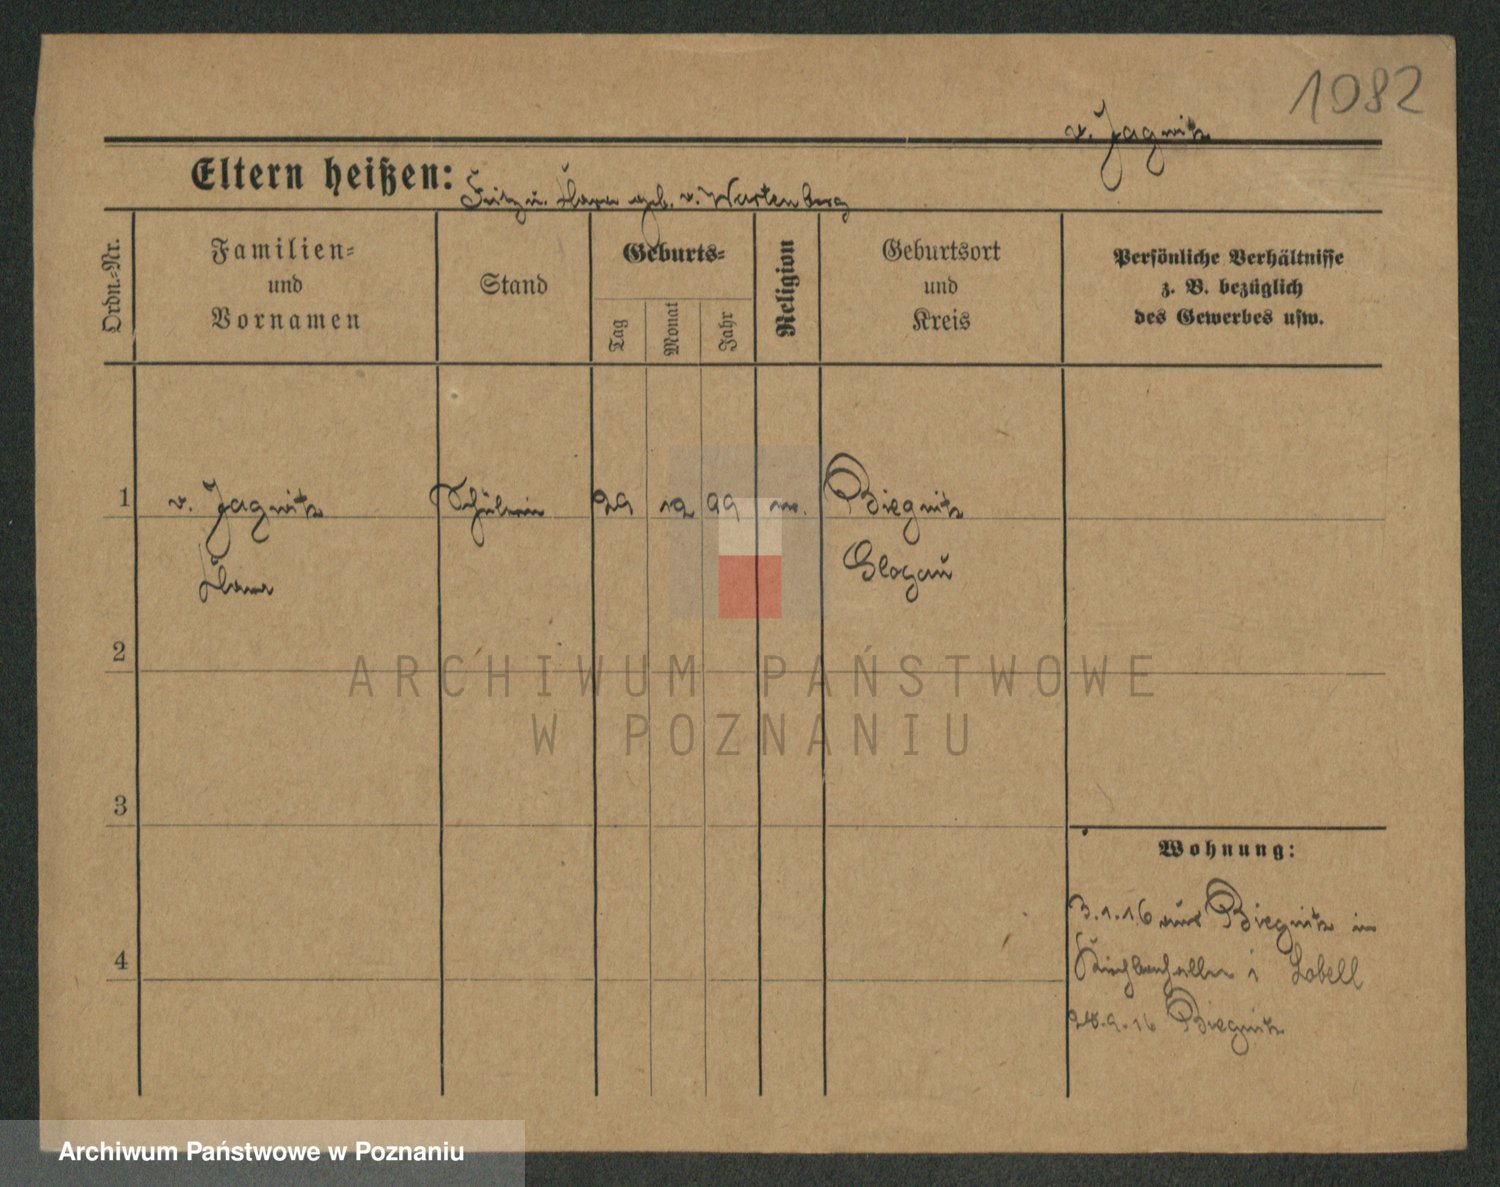 1082
v. Jagwitz
Eltern heißen: Fritz u. geb. v. Wartenberg
Ordn.-Nr.
Familien-
und
Vornamen
Stand
Geburts-
Tag
Monat
Jahr
Religion
Geburtsort
und
Kreis
Persönliche Verhältnisse
z. B. bezüglich
des Gewerbes usw.
1 v. Jagwitz Schülerin 29 12 99 Biegnitz
Glogau
2
3
4
Wohnung:
3.1.16 aus Biegnitz in
i Lobell
28.9.16 Biegnitz
ARCHIWUM PAŃSTWOWE
W POZNANIU
Archiwum Państwowe w Poznaniu